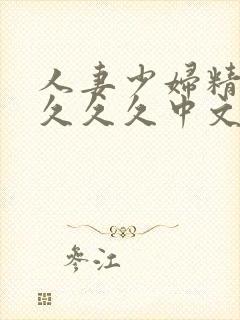 人妻少婦精
久久久中文
參江